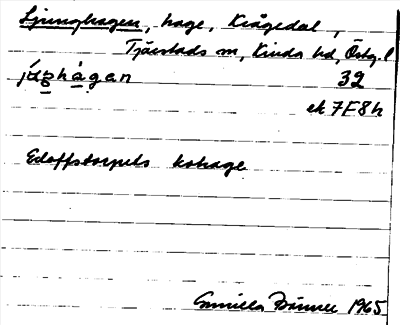 Ljunghagen, hage, Krågedal,
Tjärstads sn, Kinda hd, Östg.l
32
ek 7F8h
Edoffstorpets kohage
Gunilla 1965